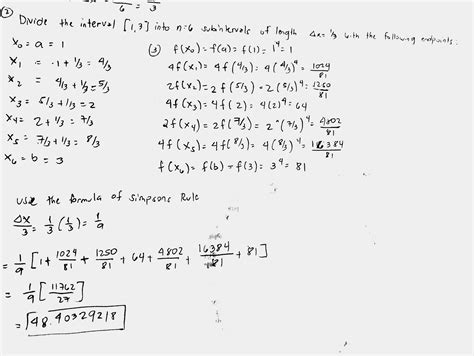 6 3
② Divide the interval [1,3] into n=6 subintervals of length Δx=1/3 with the following endpoints:
x₀ = a = 1
x₁ = 1 + 1/3 = 4/3
x₂ = 4/3 + 1/3 = 5/3
x₃ = 5/3 + 1/3 = 2
x₄ = 2 + 1/3 = 7/3
x₅ = 7/3 + 1/3 = 8/3
x₆ = b = 3
③ f(x₀) = f(a) = f(1) = 1⁴ = 1
4f(x₁) = 4f(4/3) = 4(4/3)⁴ = 1024/81
2f(x₂) = 2f(5/3) = 2(5/3)⁴ = 1250/81
4f(x₃) = 4f(2) = 4(2)⁴ = 64
2f(x₄) = 2f(7/3) = 2(7/3)⁴ = 4802/81
4f(x₅) = 4f(8/3) = 4(8/3)⁴ = 16384/81
f(x₆) = f(b) = f(3) = 3⁴ = 81
use the formula of simpsons Rule
Δx/3 = 1/3 (1/3) = 1/9
= 1/9 [1 + 1024/81 + 1250/81 + 64 + 4802/81 + 16384/81 + 81]
= 1/9 [11762/27]
= 48.40329218